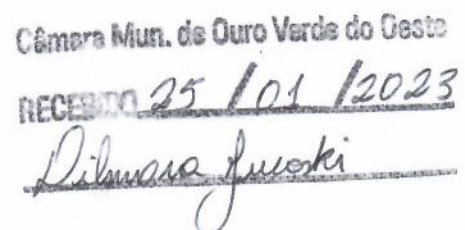 Câmara Mun. de Ouro Verde do Oeste
RECEBIDO 25 / 01 / 2023
Dilmara